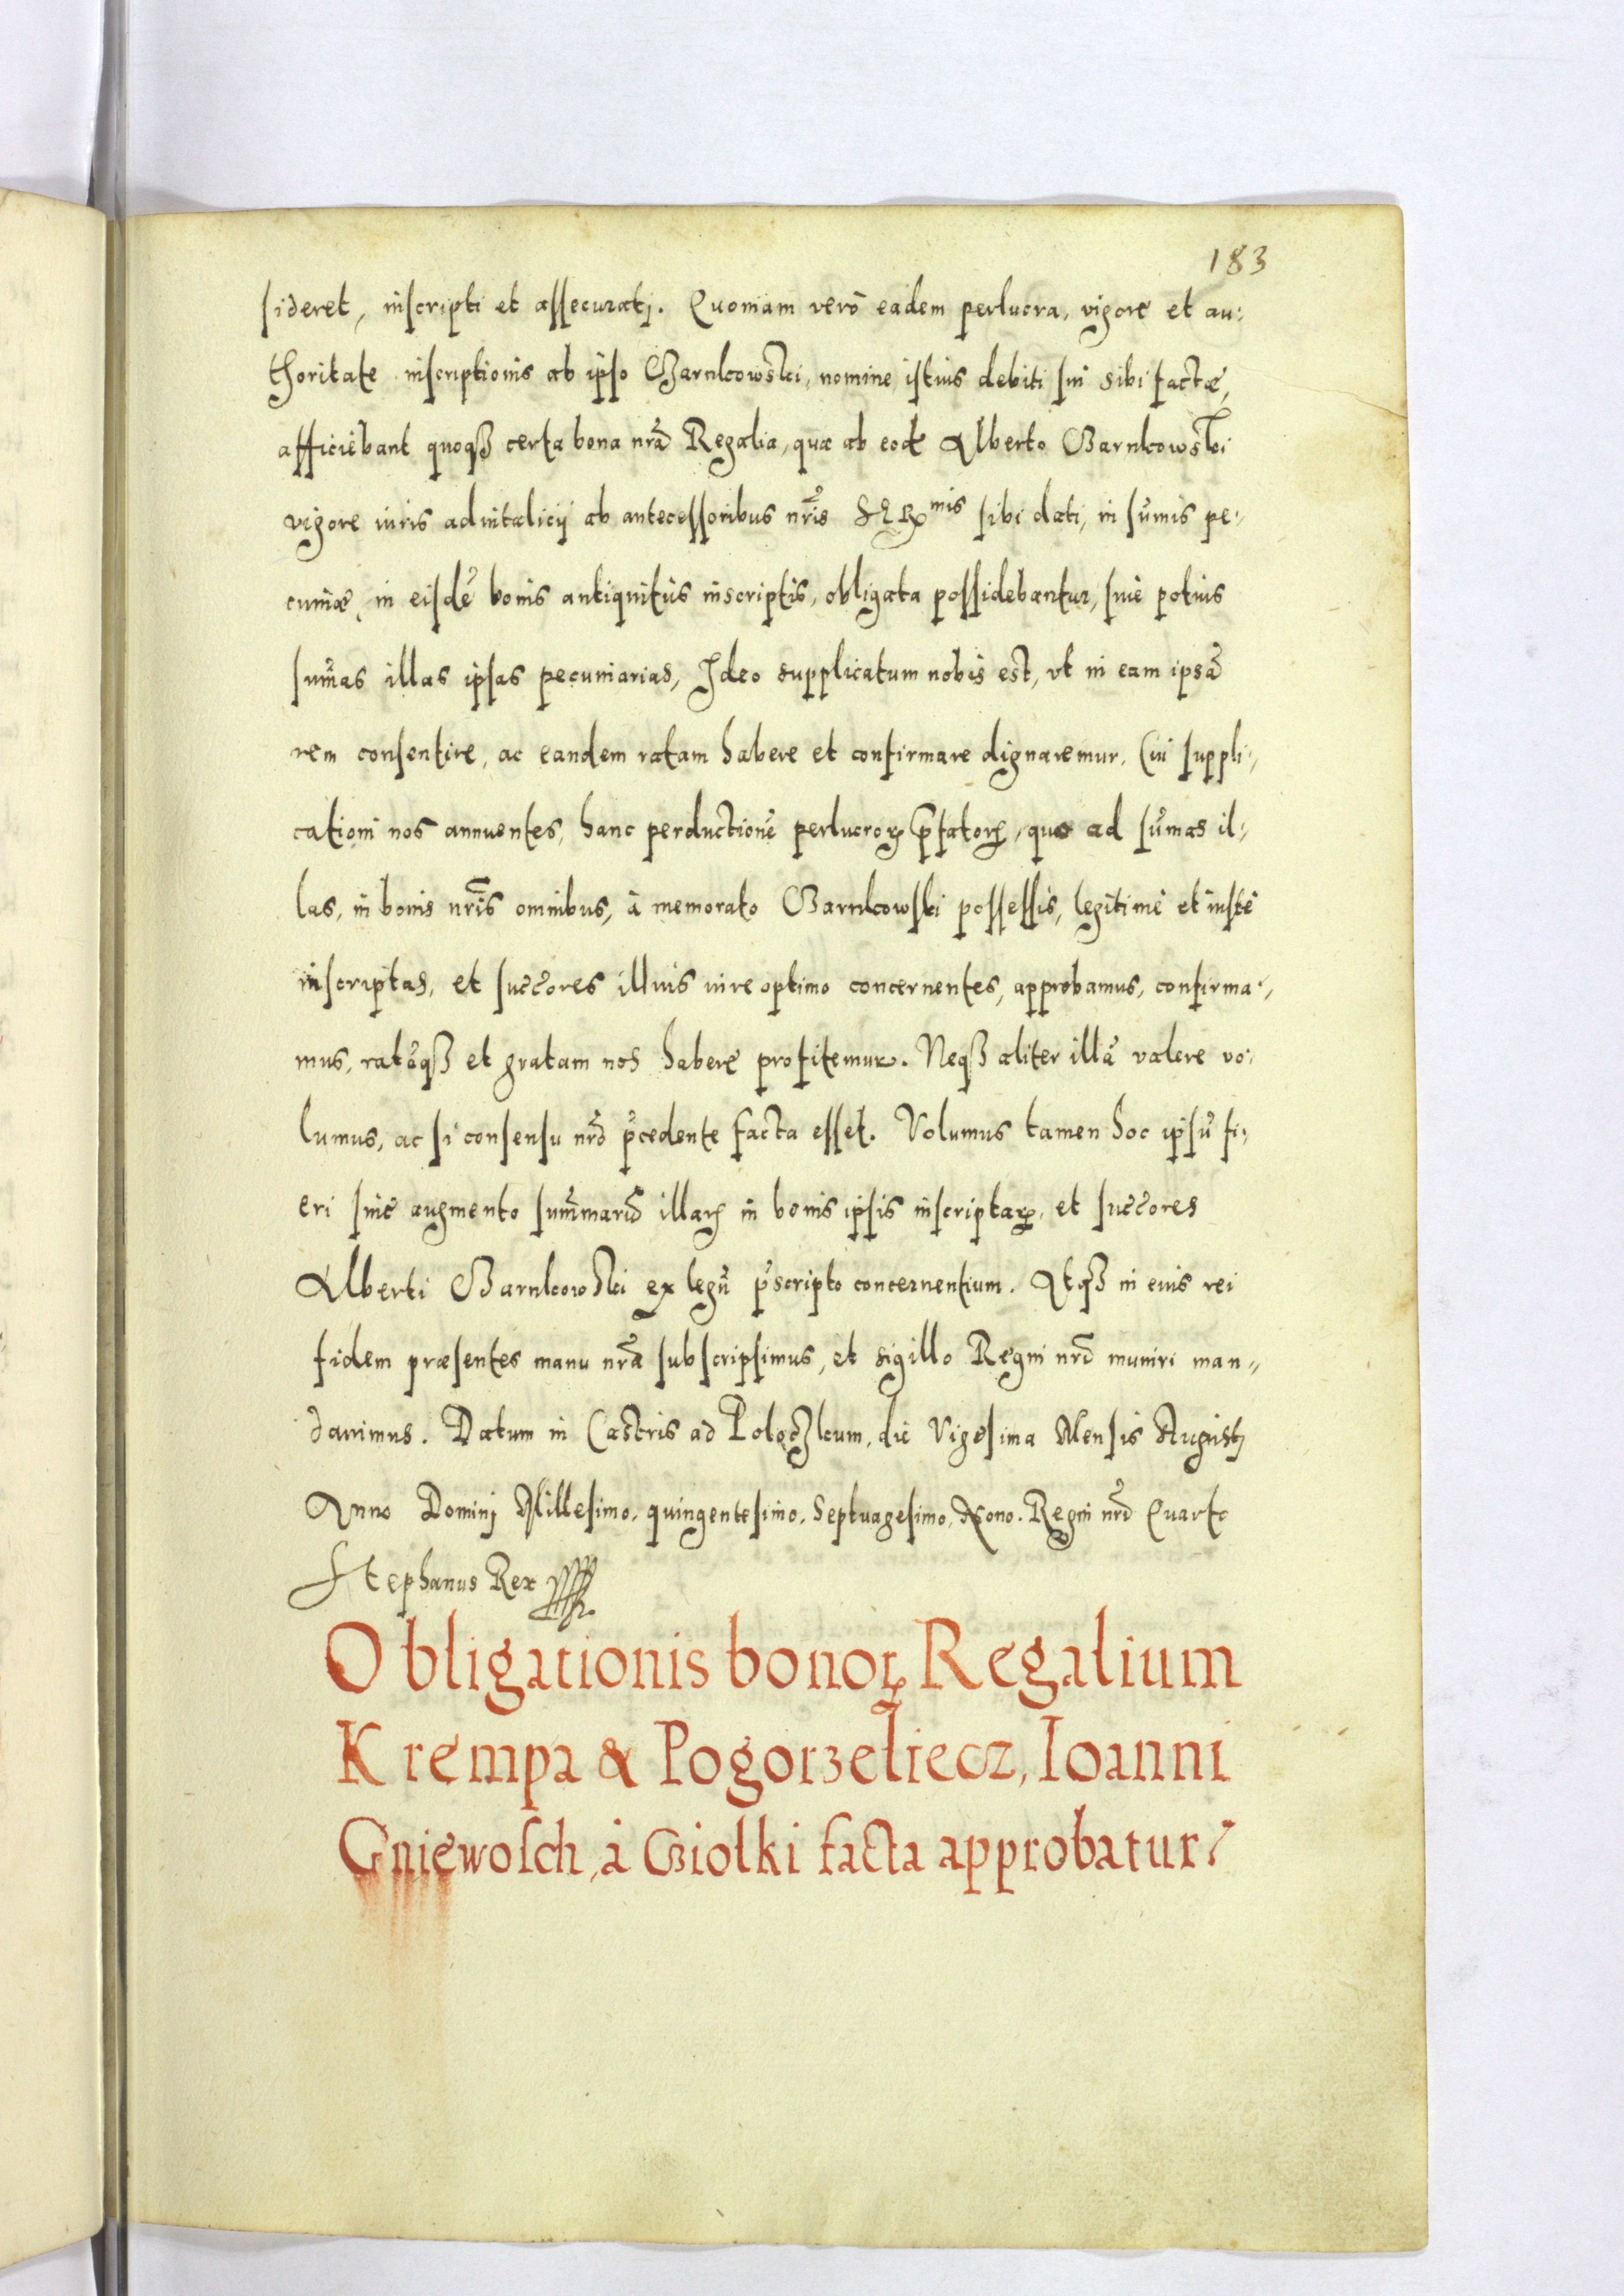 183
sideret, inscripti et assecuratj. Quoniam verò eadem perlucra, vigore et au:
thoritate inscriptionis ab ipso Barnkowski, nomine istius debiti sui sibi factæ,
afficiebant quoqß certa bona nrã Regalia, quæ ab eodẽ Alberto Barnkowski
vigore iuris aduitalicij ab antecessoribus nrĩs sibi dati, in sum̃is pe:
cuniæ, in eisdẽ bonis antiquitùs inscriptis, obligata possidebantur, siue potius
sum̃as illas ipsas pecuniarias, Ideo supplicatum nobis est, vt in eam ipsã
rem consentire, ac eandem ratam habere et confirmare dignaremur. Cui suppli:
cationi nos annuentes, hanc perductionẽ perlucroꝝ p̃fatoꝝ, quo ad sum̃as il:
las, in bonis nrĩs omnibus, à memorato Barnkowski possessis, legitimè et iustè
inscriptas, et succ̃ores illius iure optimo concernentes, approbamus, confirma:
mus, ratãqß et gratam nos habere profitemur. Neqß aliter illã valere vo:
lumus, ac si consensu nrõ p̃cedente facta esset. Volumus tamen hoc ipsũ fi:
eri sine augmento sum̃marũ illaꝝ in bonis ipsis inscriptaꝝ, et succ̃ores
Alberti Barnkowski ex legũ p̃scripto concernentium. Atqß in eius rei
fidem præsentes manu nrã subscripsimus, et sigillo Regni nrĩ muniri man:
dauimus. Datum in Castris ad Poloczkum, die Vigesima Mensis Augustj
Anno Dominj Millesimo, quingentesimo, Septuagesimo, Nono. Regni nrĩ Quarto
Stephanus Rex
Obligationis bonoꝝ Regalium
Krempa & Pogorzeliecz, Ioanni
Gniewosch, à Giolki facta approbatur